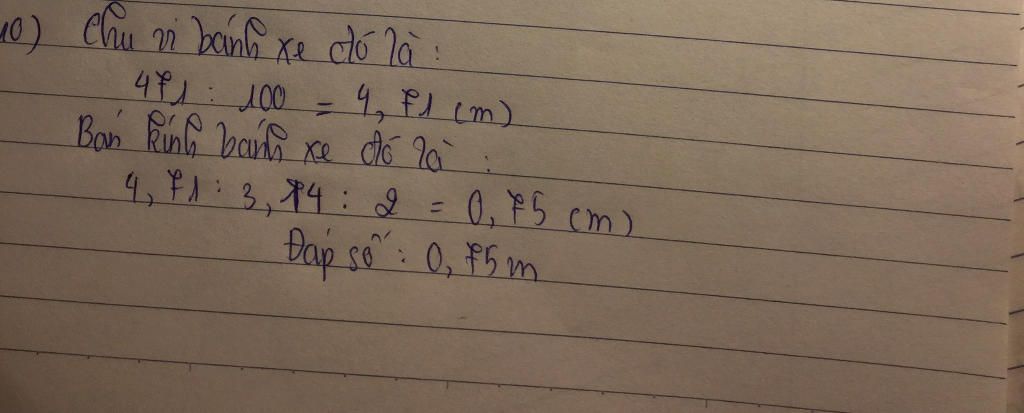 10) Chu vi bánh xe đó là :
471 : 100 = 4,71 (m)
Bán kính bánh xe đó là :
4,71 : 3,14 : 2 = 0,75 (m)
Đáp số : 0,75m